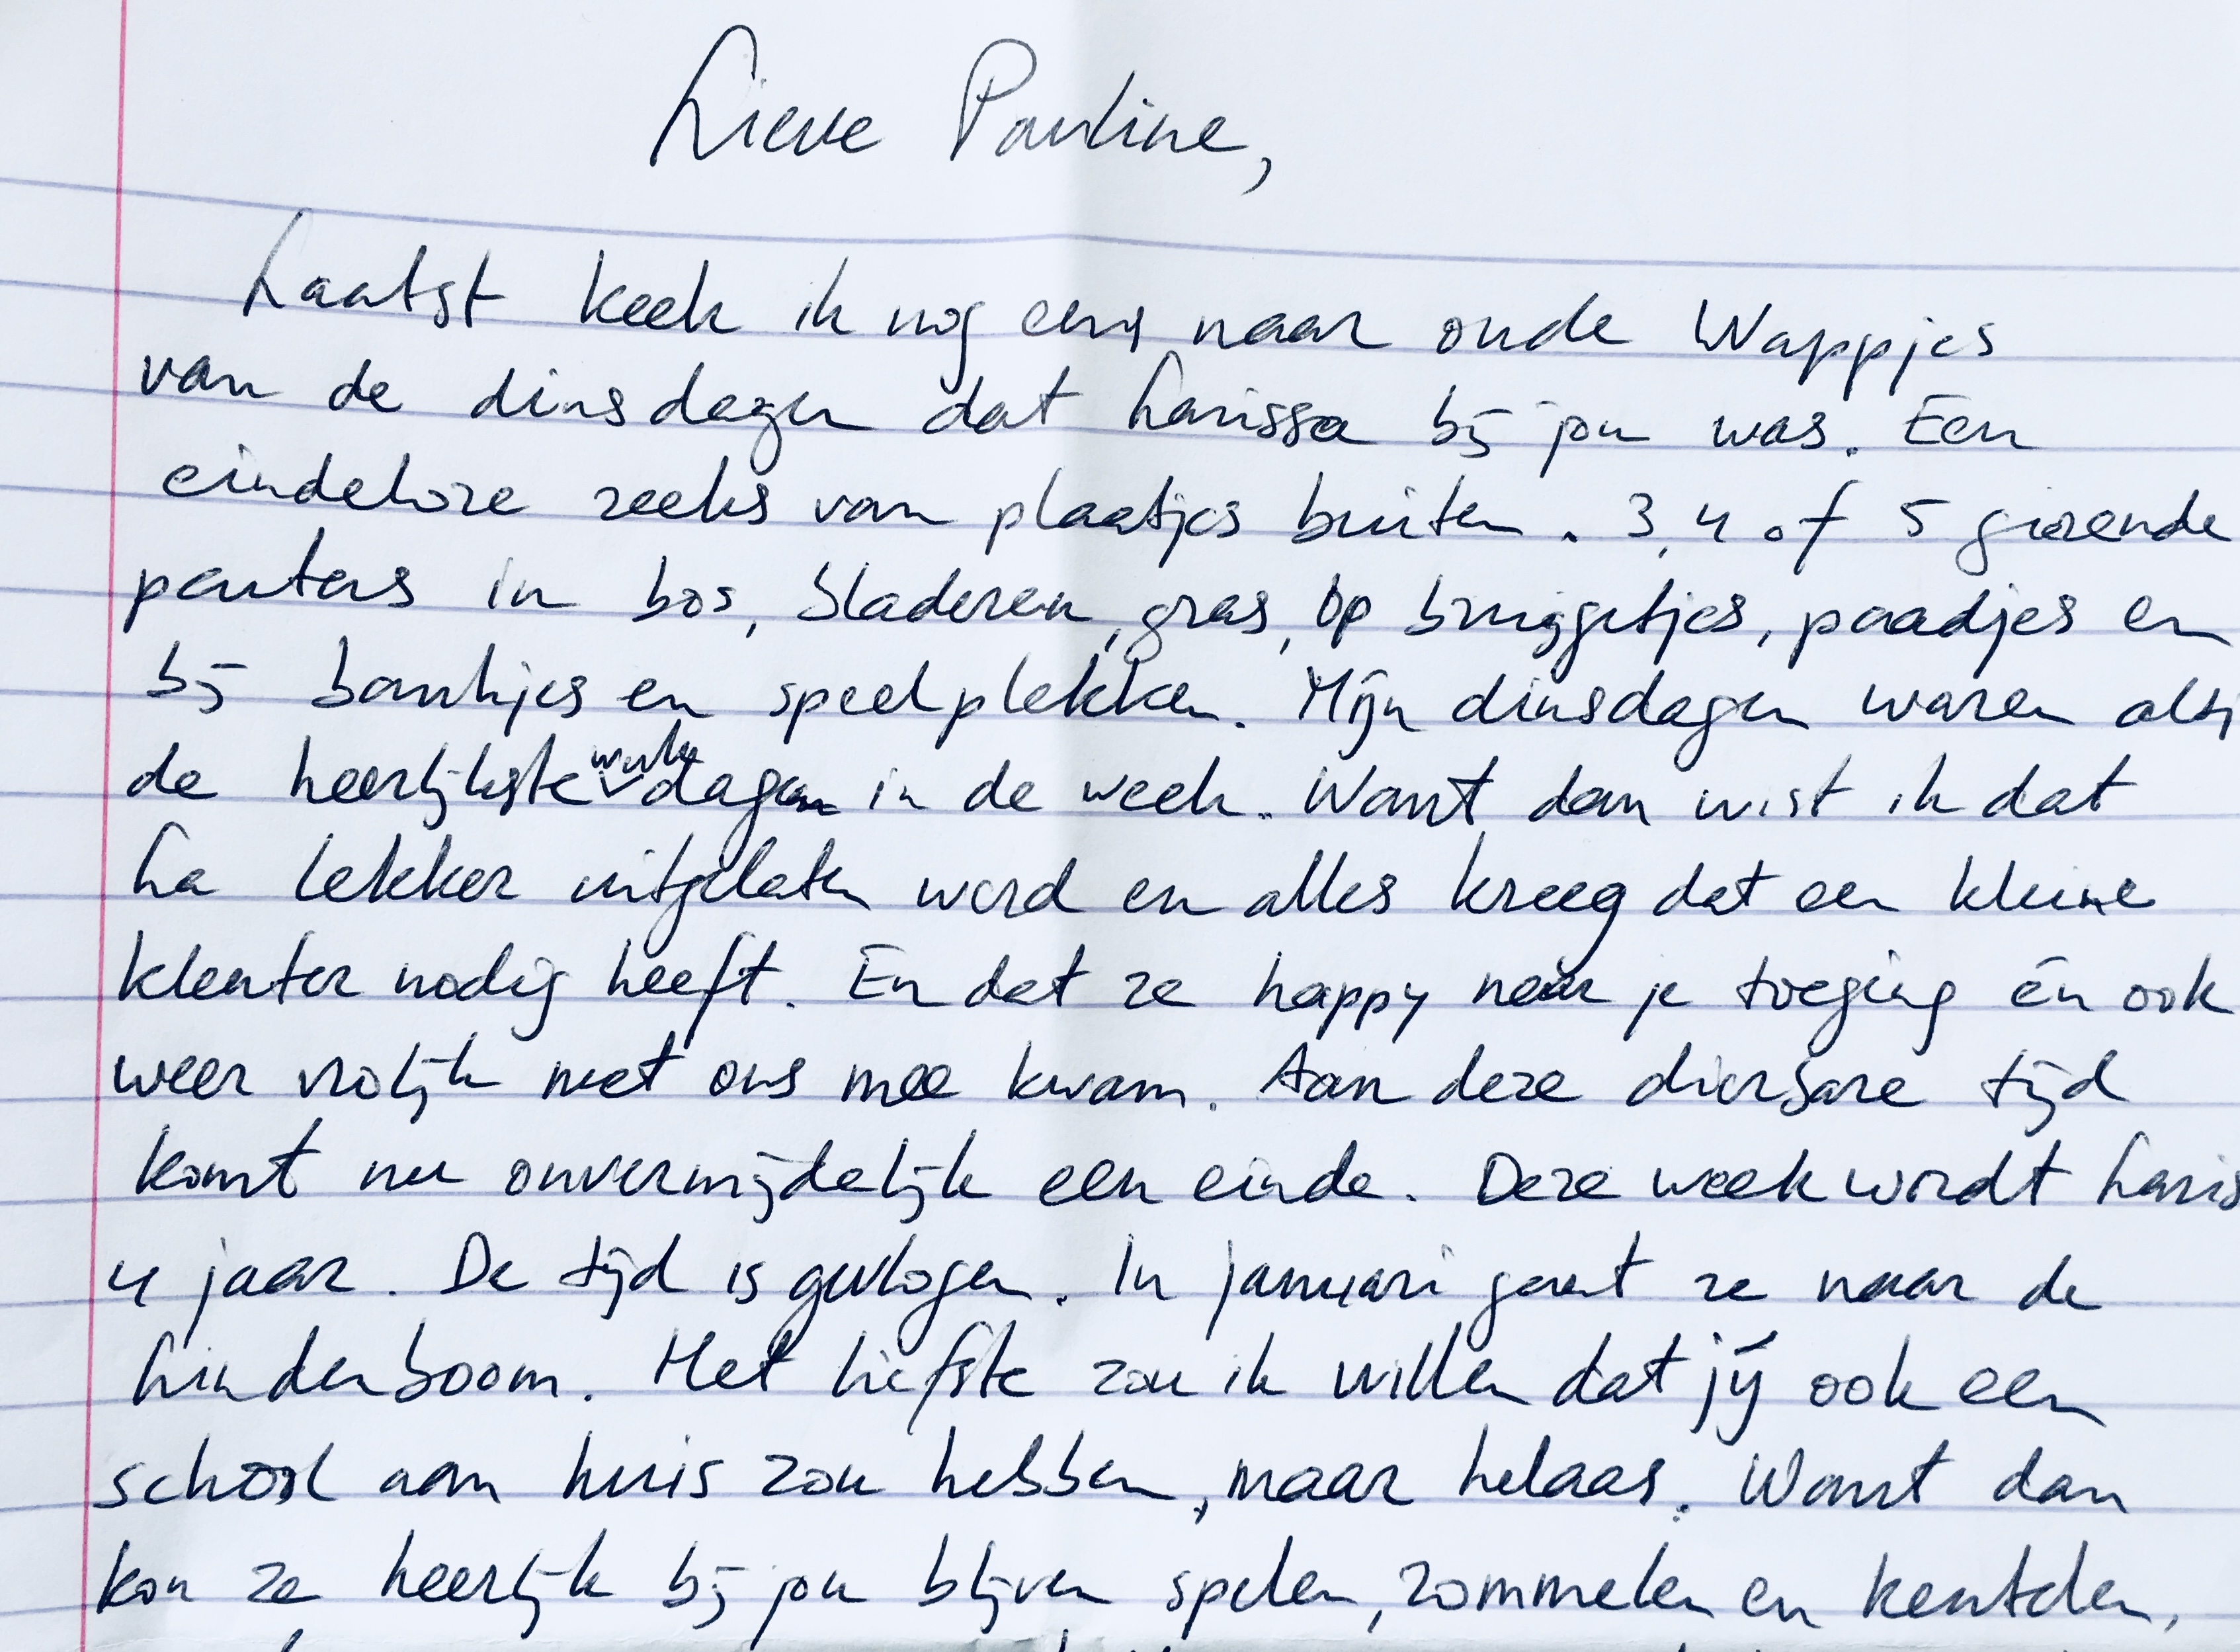 Lieve Pauline,
Laatst keek ik nog eens naar oude Wappjes
van de dinsdagen dat Larissa bij jou was. Een
eindeloze reeks van plaatjes buiten. 3, 4 of 5 gierende
peuters in bos, bladeren, gras, op bruggetjes, paadjes en
bij bankjes en speelplekken. Mijn dinsdagen waren altij
de heerlijkste werkdagen in de week. Want dan wist ik dat
La lekker uitgelaten werd en alles kreeg dat een kleine
kleuter nodig heeft. En dat ze happy naar je toeging én ook
weer vrolijk met ons mee kwam. Aan deze dierbare tijd
komt nu onvermijdelijk een einde. Deze week wordt Laris
4 jaar. De tijd is gevlogen. In januari gaat ze naar de
Lindenboom. Het liefste zou ik willen dat jij ook een
school aan huis zou hebben, maar helaas. Want dan
kon ze heerlijk bij jou blijven spelen, rommelen en keutelen,